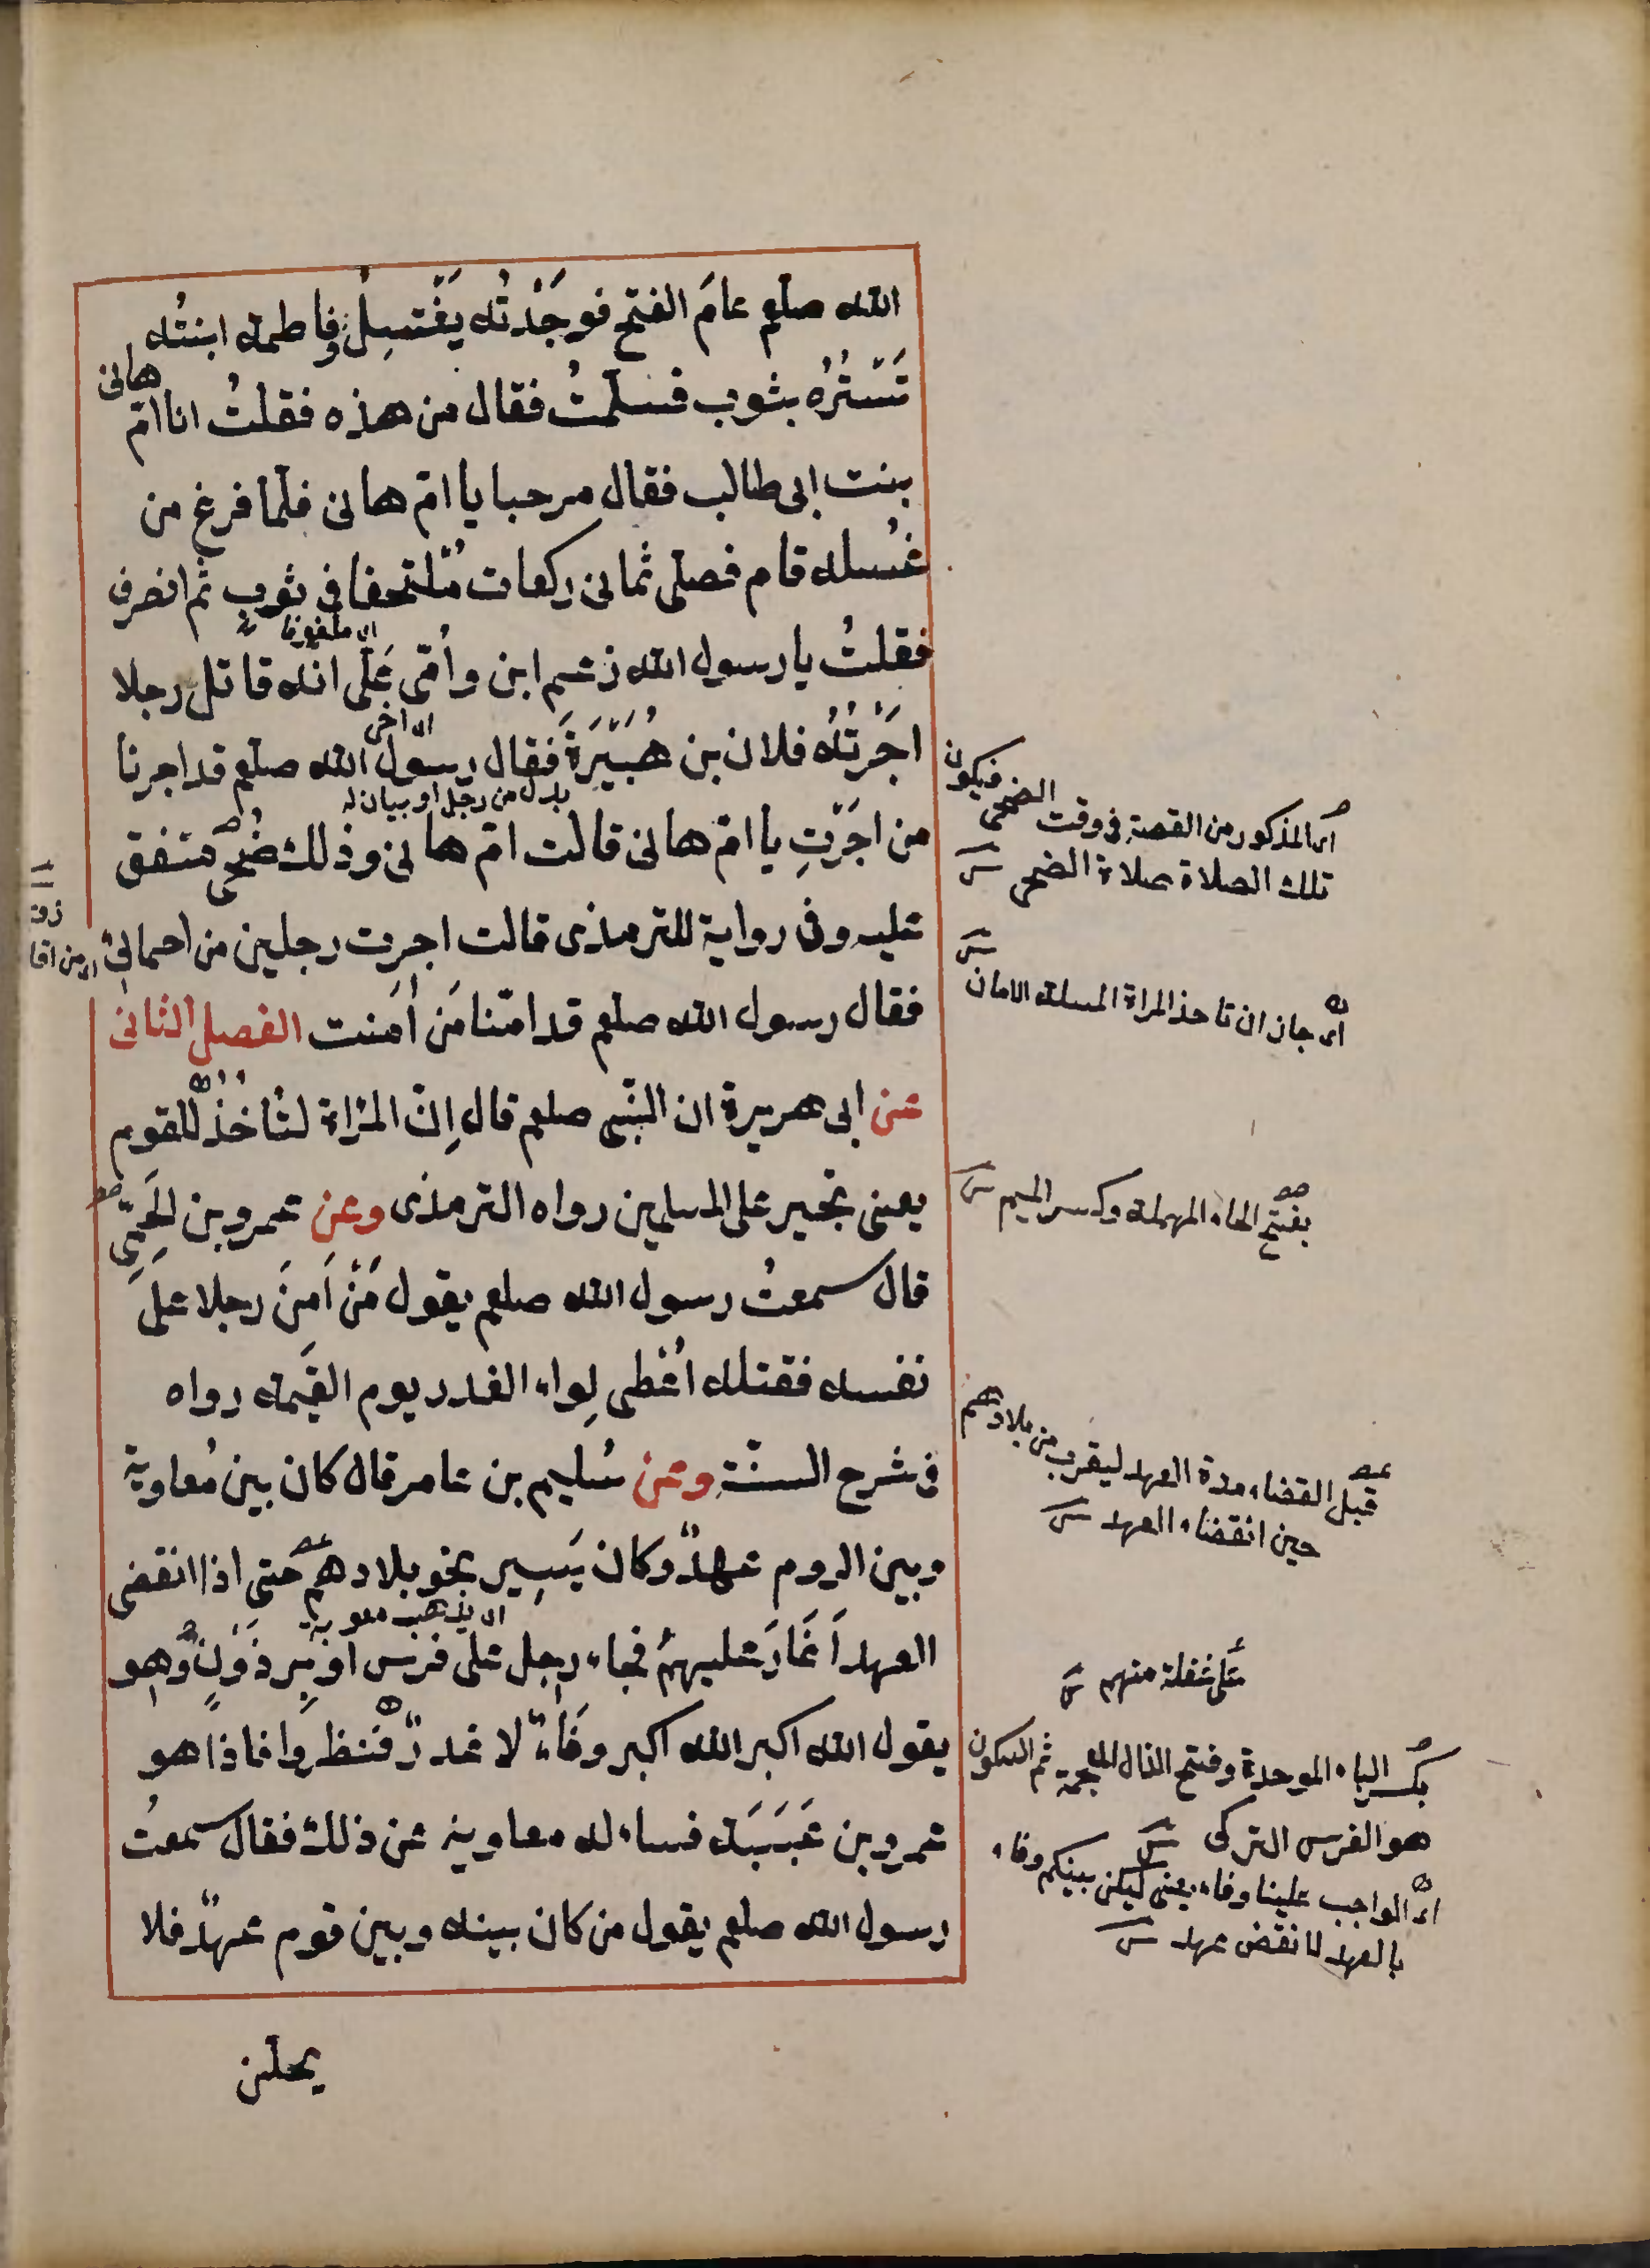 الله صلعم عامَ الفتح فوجَدْتُه يَغْتَسِلُ وفاطمة ابنتُه
تَسْتُرُه بثوب فسلمتُ فقال من هذه فقلتُ انا امّ هانى
بنت ابى طالب فقال مرحبا يا امّ هانى فلمّا فرغ من
غُسله قام فصلى ثمانى ركعات مُلْتحفا فى ثوبٍ ثم انصرف
اى ملفوفا
فقلتُ يا رسول الله زعم ابن وأمّى عَلىّ انّه قاتل رجلا
اى اخى
اجَرْتُهُ فلان بن هُبَيْرَةَ فقال رسول الله صلعم قد اجرنا
بدل من رجل او بيان له
من اجَرْتِ يا امّ هانى قالت امّ هانى وذلك ضُحىً متفق
عليه وفى رواية للترمذى قالت اجرت رجلين من احمائى
اى من اقا
فقال رسول الله صلعم قد امّنا مَن اٰمَنت الفصل الثانى
عن ابى هريرة ان النّبى صلعم قال اِنّ المرْاة لتأخُذُ للقوم
يعنى تجير على المسلمين رواه الترمذى وعن عمرو بن الحَمِقِ
قال سمعتُ رسول الله صلعم يقول مَنْ اَمنَ رجلا على
نفسه فقتله اُعْطى لِواء الغدر يوم القيٰمة رواه
فى شرح السنّة وعن سُليم بن عامر قال كان بين مُعاوية
وبين الروم عهدٌ وكان يَسِير نحو بلادهم حتى اذا انقضى
اى يذهب معوية
العهد اَغَارَ عليهم فجاء رجل على فرس او بِرذَوْنٍ وهو
يقول الله اكبر الله اكبر وفَاءٌ لا غدرٌ فنظروا فاذا هو
عمرو بن عَبَسَة فساءله معاوية عن ذلك فقال سمعتُ
رسول الله صلعم يقول من كان بينه وبين قوم عهدٌ فلا
يحلّن
اى المذكور من القصة فى وقت الضحى فيكون
تلك الصلاة صلاة الضحى
اى جاز ان تاخذ المراة المسلمة الامان
بفتح الحاء المهملة وكسر الميم
قبل القضاء مدة العهد ليقرب من بلادهم
حين انقضاء العهد
على غفلة منهم
بكسر الباء الموحدة وفتح الذال المعجمة ثم السكون
هو الفرس التركى
اى الواجب علينا وفاء يعنى ليكن بينكم وفاء
بالعهد لا نقض عهد